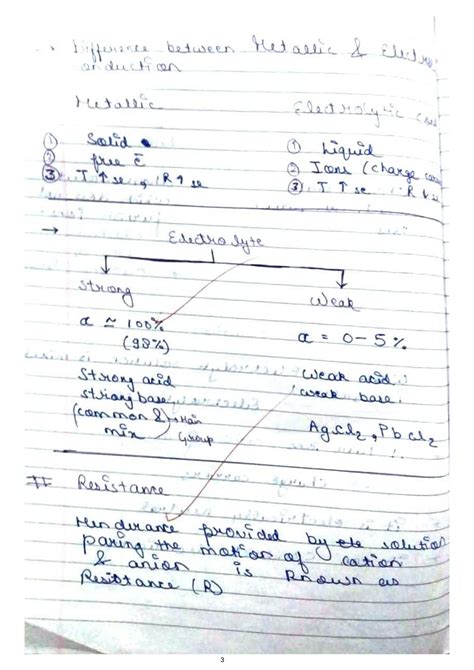 → Difference between Metallic & Electro
onduction
Metallic Electrolytic Con
① Solid ① Liquid
② free ē ② Ions (charge
③ T ↑ se, R ↑ se ③ T ↑ se R ↓ se
→ Electrolyte
Strong Weak
α ≃ 100% α = 0-5%
(98%)
Strong acid Weak acid
strong base weak base
(common & → Main AgCl2, PbCl2
mix Group
# Resistance
Hindrance provided by ele solution
paring the motion of cation
& anion is known as
Resistance (R)
3